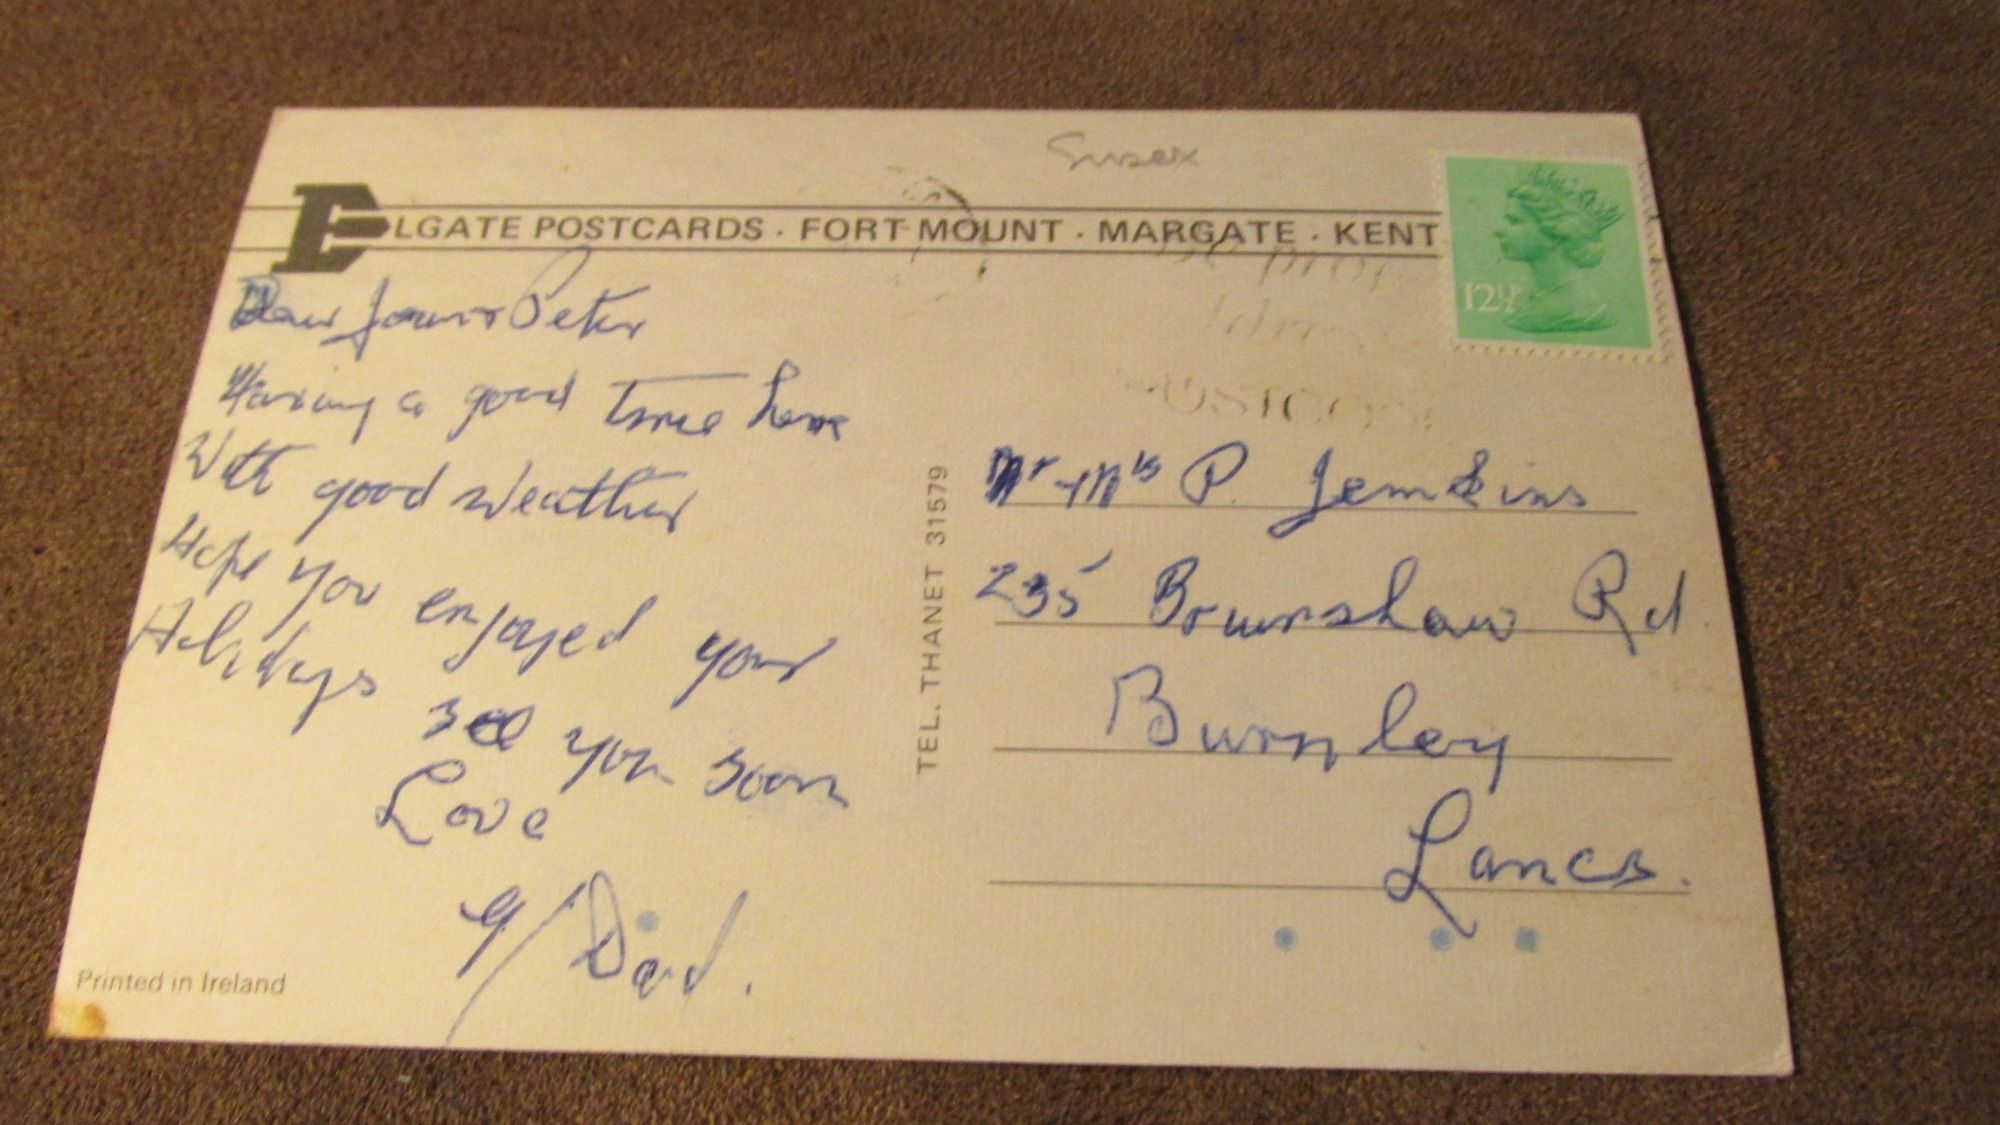 Susex
ELGATE POSTCARDS · FORT MOUNT · MARGATE · KENT
12½P
Dear Peter
Having a good time here
With good weather
Hope you enjoyed your
Holidays
see you soon
Love
Dad.
TEL. THANET 31579
Mr + Mrs P. Jenkins
235 Brunshaw Rd.
Burnley
Lancs.
Printed in Ireland